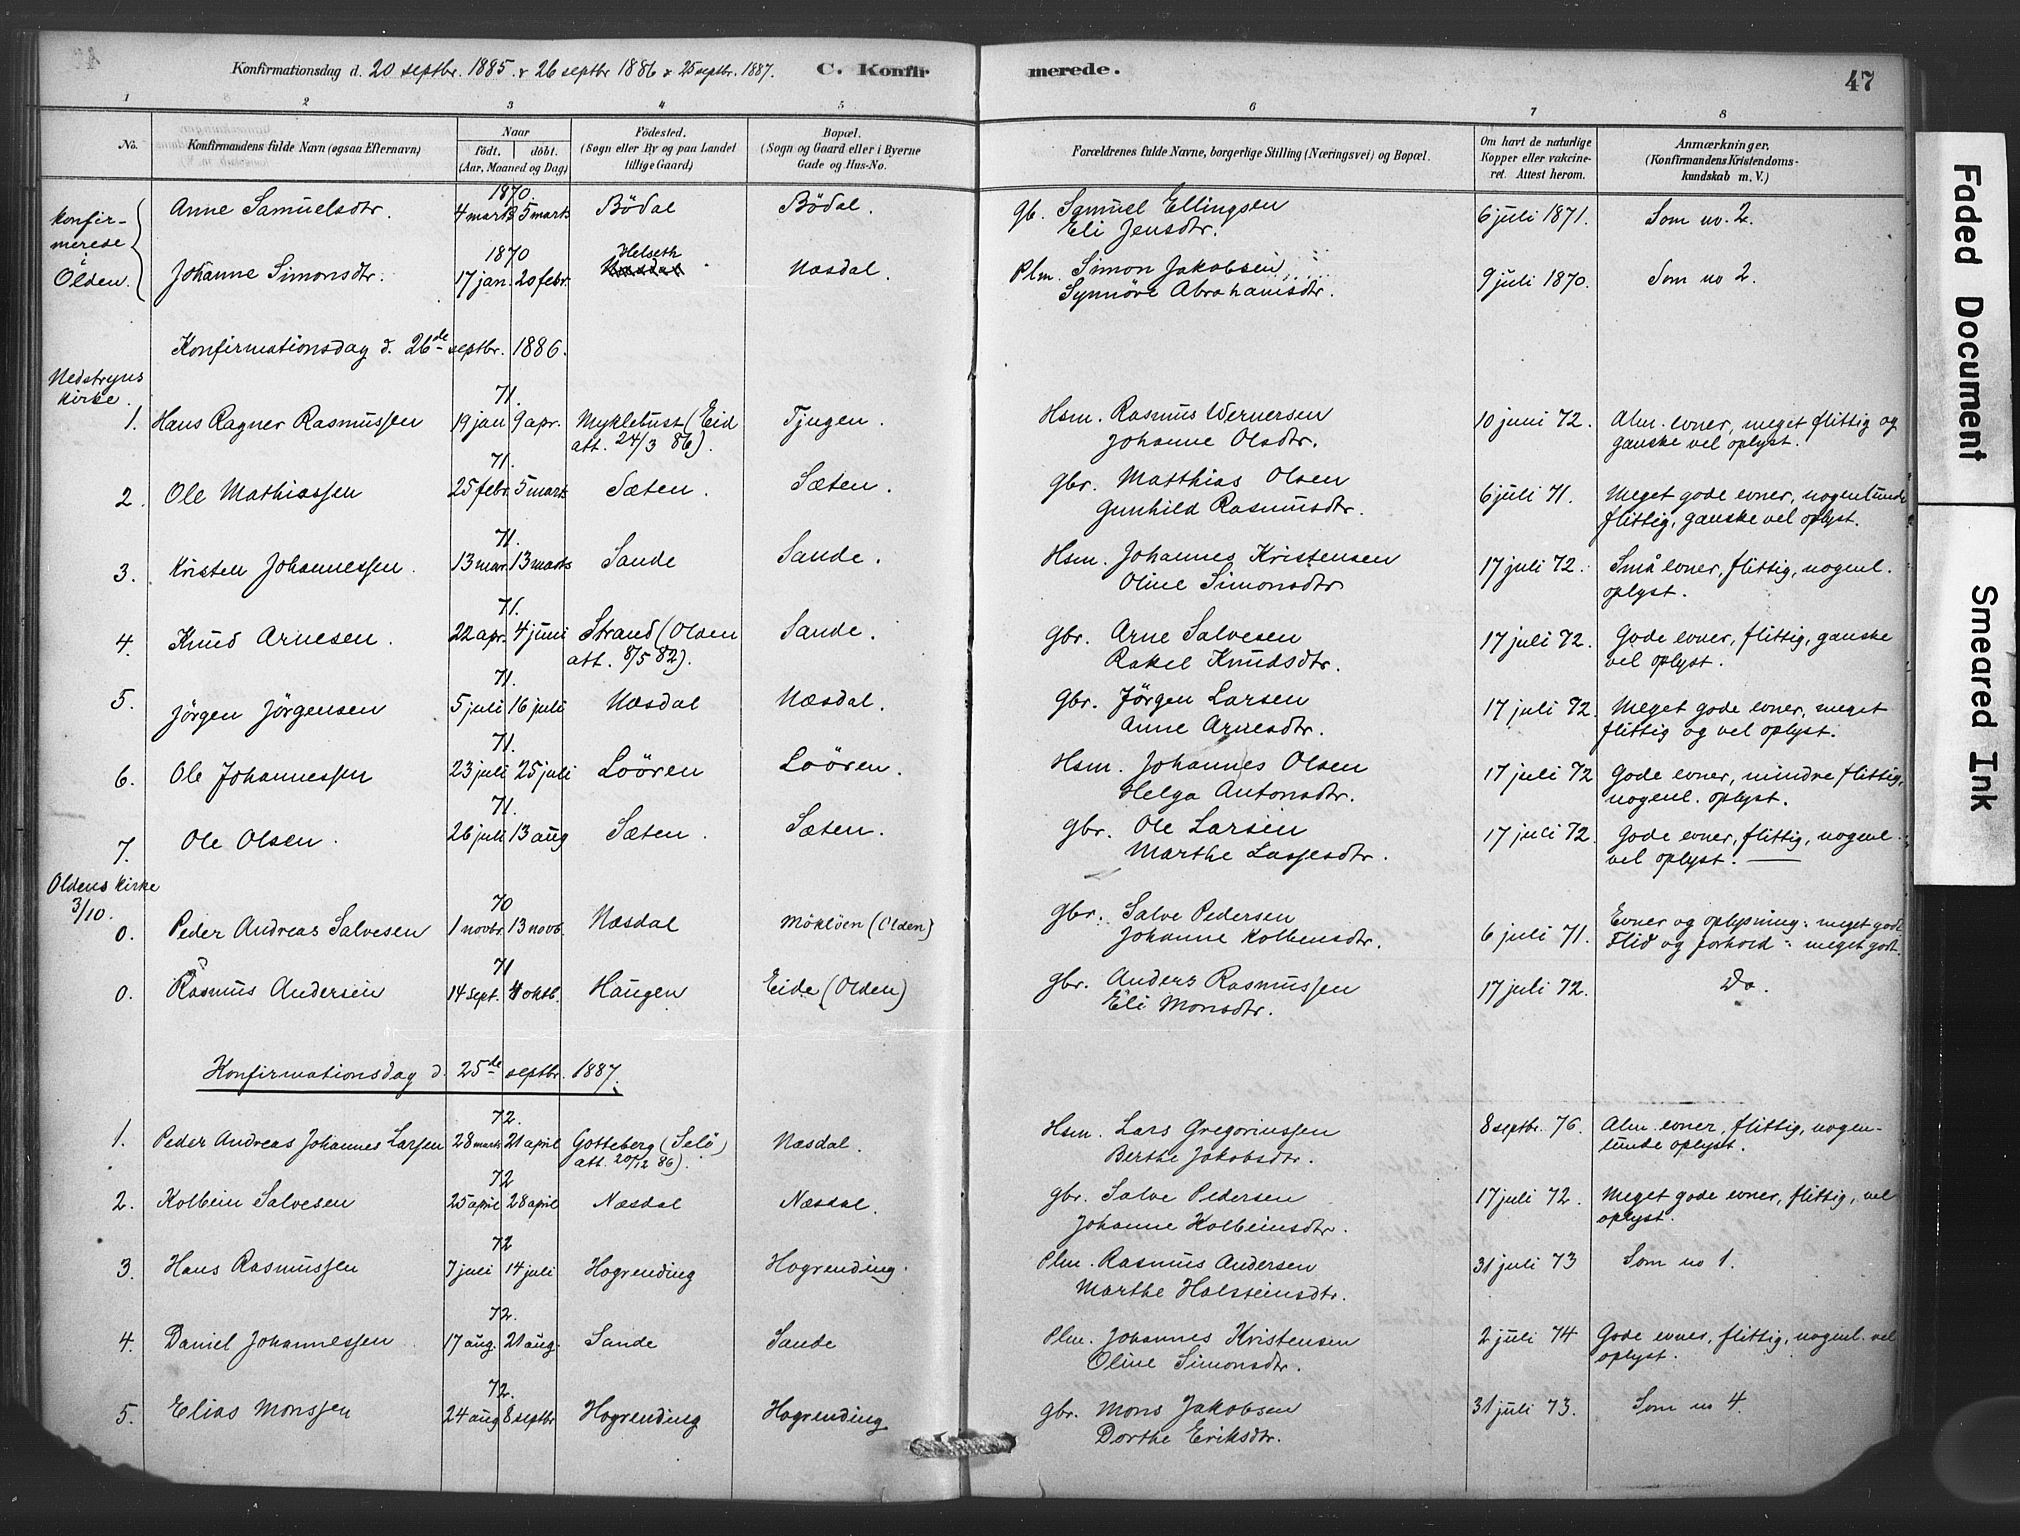 Konfirmationsdag d. 20 septbr. 1885 & 26 septbr 1886 & 25 septbr. 1887. C. Konfir merede. 47
1 2 3 4 5 6 7 8
No. Konfirmandens fulde Navn (ogsaa Efternavn) Naar födt. döbt. (Aar, Maaned og Dag) Födested. (Sogn eller By og paa Landet tillige Gaard) Bopæl. (Sogn og Gaard eller i Byerne Gade og Hus-No. Forældrenes fulde Navne, borgerlige Stilling (Næringsvei) og Bopæl. Om havt de naturlige Kopper eller vakcineret. Attest herom. Anmærkninger. (Konfirmandens Kristendomskundskab m. V.)
konfir-
merede
i
Olden.
1870.
Anne Samuelsdtr. 4 marts 5 marts Bödal Bödal. Gb. Samuel Ellingsen 6 juli 1871. Som no. 2.
Eli Jensdtr.
1870 Helseth
Johanne Simonsdtr. 17 jan. 20 febr. Næsdal Næsdal. Plm. Simon Jakobsen 9 juli 1870. Som no 2.
Synnöve Abrahamsdtr.
Konfirmationsdag d. 26de septbr. 1886.
Nedstryns
kirke.
71.
1. Hans Ragner Rasmussen 19 jan 9 apr. Myklebust (Eid Tjugen. Hsm. Rasmus Wernersen 10 juni 72. Alm. evner, meget flittig og
att. 24/3 86). Johanne Olsdtr. ganske vel oplyst.
71.
2. Ole Mathiassen 25 febr. 5 mart Sæten. Sæten. gbr. Matthias Olsen 6 juli 71. Meget gode evner, nogenlunde
Gunhild Rasmusdtr. flittig, ganske vel oplyst.
71.
3. Kristen Johannessen. 13 mar 13 marts Sande Sande. Hsm. Johannes Kristensen 17 juli 72. Små evner, flittig, nogenl.
Oline Simonsdtr oplyst.
71.
4. Knud Arnesen. 22 apr. 4 juni Strand (Olden Sande. gbr. Arne Salvesen 17 juli 72. Gode evner, flittig, ganske
att. 8/5 82). Rakel Knudsdtr. vel oplyst.
71.
5. Jörgen Jörgensen 5 juli 16 juli Næsdal Næsdal. gbr. Jörgen Larsen 17 juli 72. Meget gode evner, meget
Anne Arnesdtr. flittig og vel oplyst.
71.
6. Ole Johannessen 23 juli 25 juli Loören Loören. Hsm. Johannes Olsen 17 juli 72 Gode evner, mindre flittig,
Helga Antonsdtr. nogenl. oplyst.
71.
7. Ole Olsen. 26 juli 13 aug Sæten. Sæten. gbr. Ole Larsen 17 juli 72. Gode evner, flittig, nogenl.
Marthe Lassesdtr. vel oplyst.
Oldens kirke
3/10.
70
0. Peder Andreas Salvesen 1 novbr. 13 novb. Næsdal Möklöen (Olden) gbr. Salve Pedersen 6 juli 71. Evner og oplysning: meget godt
Johanne Kolbensdtr. Flid og forhold: meget godt.
71
0. Rasmus Andersen 14 sept. 4 oktb. Haugen Eide (Olden) gbr. Anders Rasmussen 17 juli 72. Do.
Eli Monsdtr.
Konfirmationsdag d. 25de septbr. 1887.
72.
1. Peder Andreas Johannes Larsen 28 mark 21 april Gotteberg (Selö) Næsdal. Hsm. Lars Gregoriussen 8 septbr. 76. Alm. evner, flittig, nogen-
att. 20/12 86). Berthe Jakobsdtr. lunde oplyst.
72
2. Kolbein Salvesen 25 april 28 april Næsdal Næsdal. gbr. Salve Pedersen 17 juli 72. Meget gode evner, flittig, vel
Johanne Kolbeinsdtr. oplyst.
72
3. Hans Rasmussen 7 juli 14 juli Hogrending Hogrending. Plm. Rasmus Andersen 31 juli 73 Som no 1.
Marthe Holsteinsdtr.
72.
4. Daniel Johannessen 17 aug. 21 aug. Sande Sande Plm. Johannes Kristensen 2 juli 74 Gode evner, flittig, nogenl. vel
Oline Simonsdtr. oplyst.
72.
5. Elias Monssen 24 aug 8 septbr Hogrending Hogrending gbr. Mons Jakobsen 31 juli 73. Som no 4.
Dorthe Eriksdtr.
Faded Document
Smeared Ink